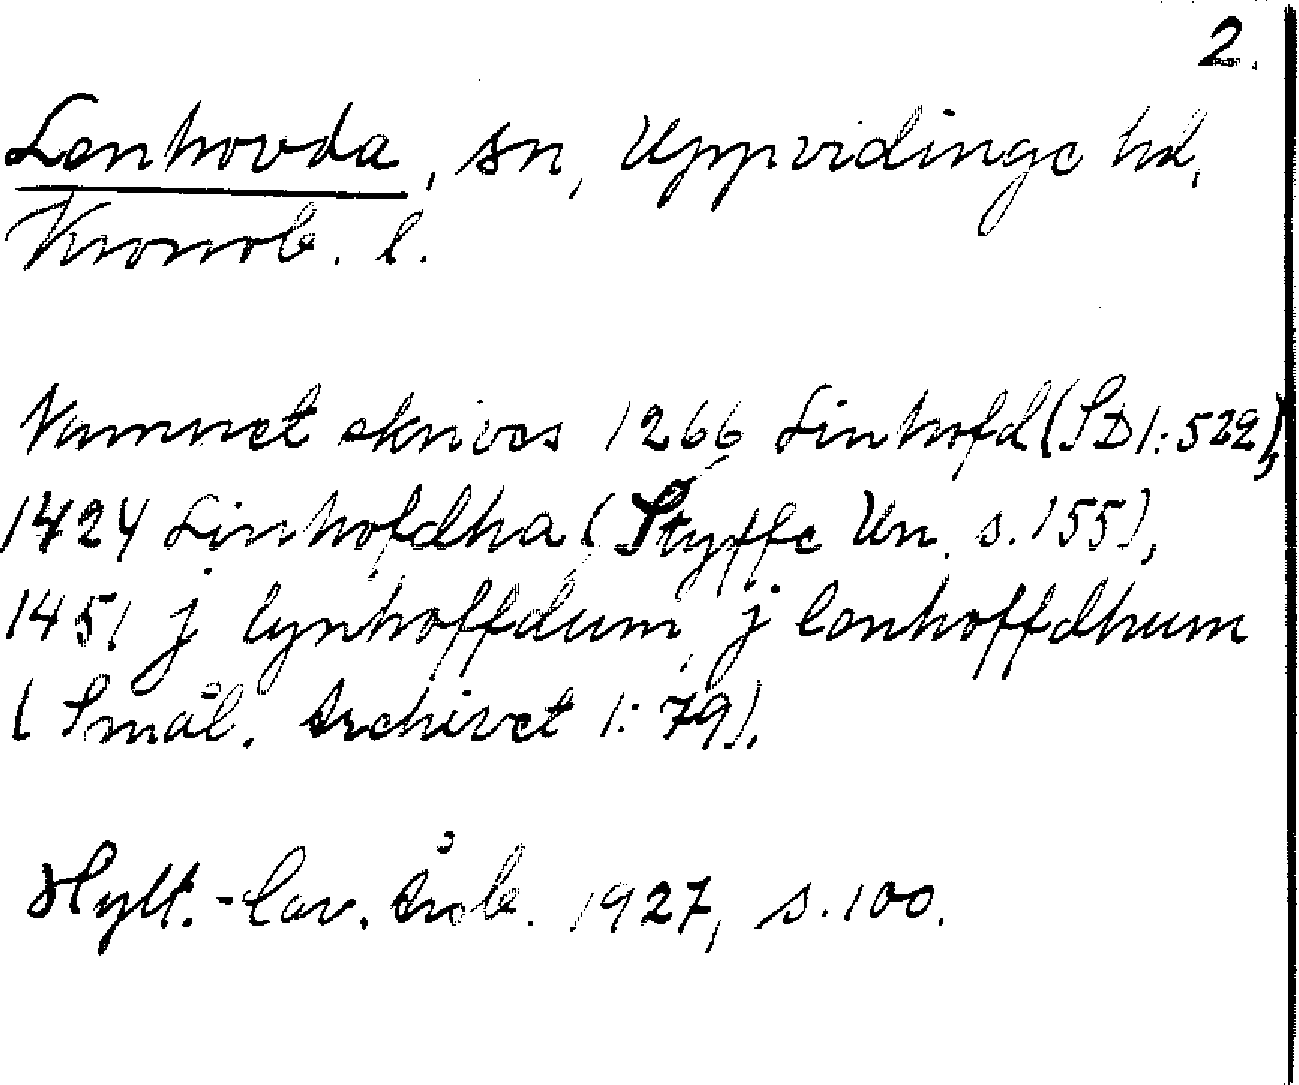 2.
Lenhovda, sn, Uppvidinge hd,
Kronob. l.
Namnet skrives 1266 Linhofd (SD 1: 522),
1424 Linhofdha (Styffe Un. s. 155),
1451 j lynhoffdum, j lenhoffdhum
(Smål. Archivet 1: 79).
Hylt.-Cav. Årsb. 1927, s. 100.